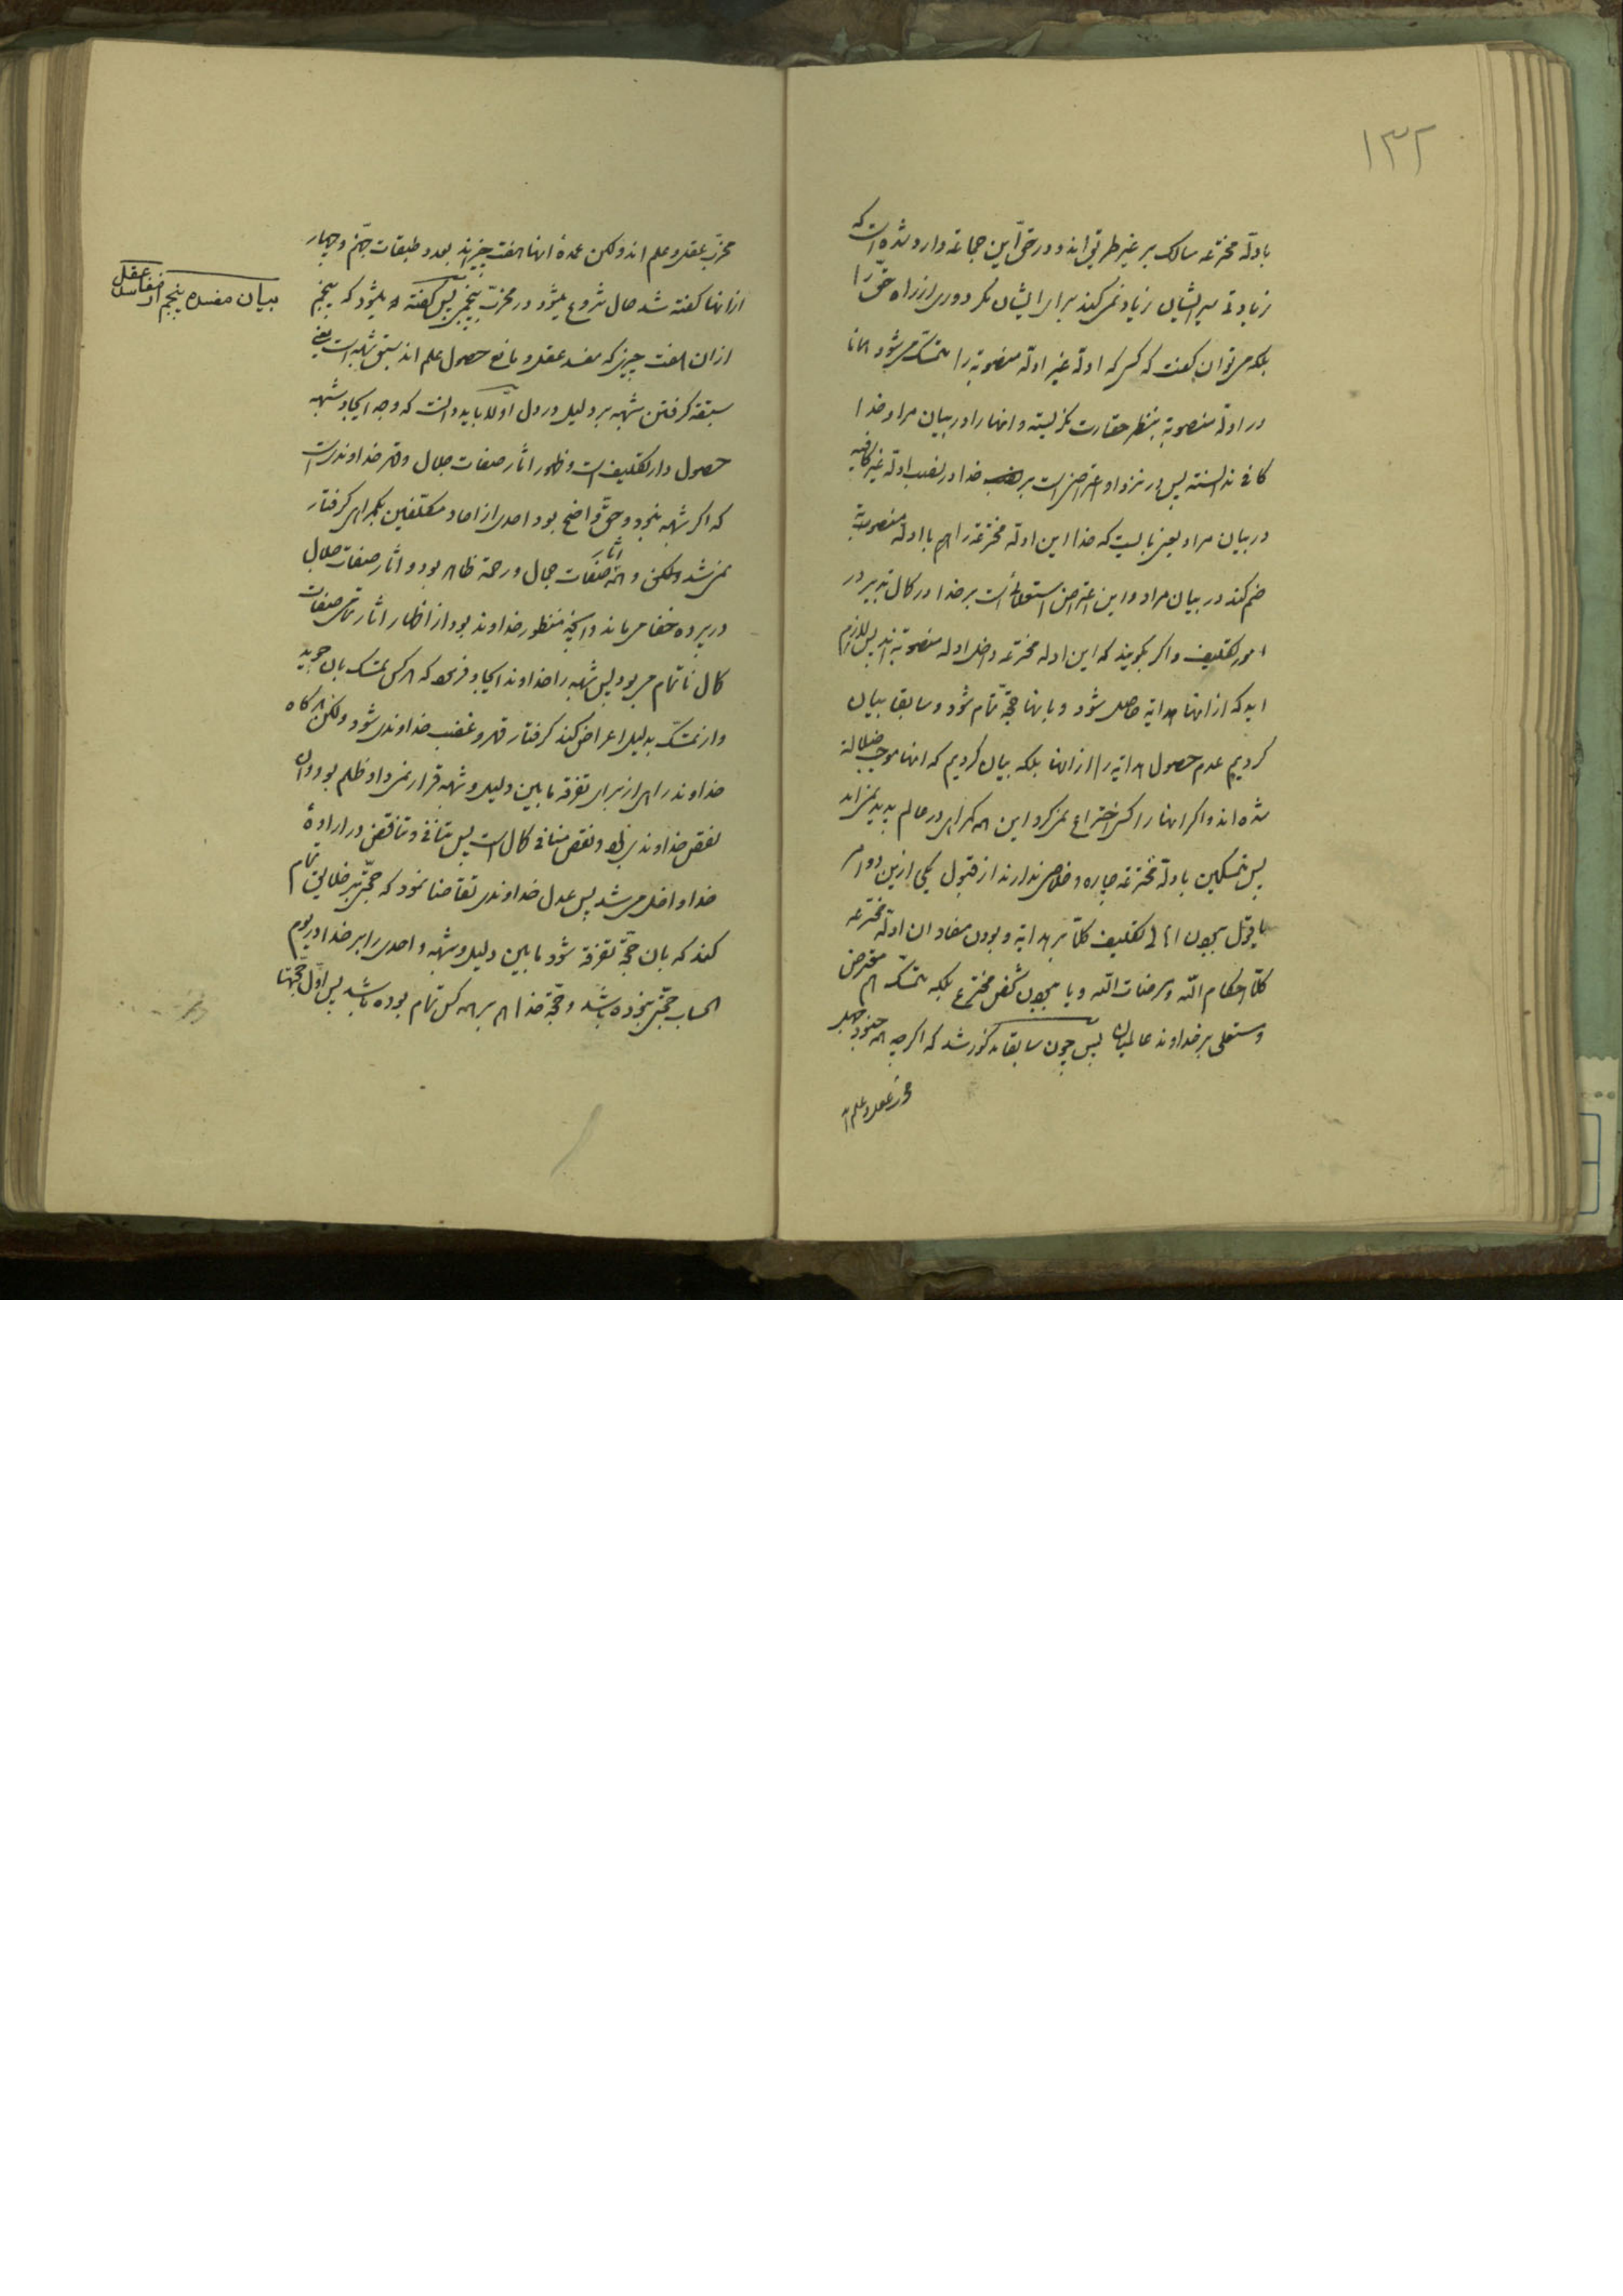 ۱۳۲
بادلّه مخترعه سالک بر غیر طریق‌اند و در حقّ این جماعه وارد شده است که
زیادتی سیر ایشان زیاد نمی‌کند برای ایشان مگر دوری از راه حقّ را
بلکه می‌توان گفت که کسی که ادلّه غیر ادلّه منصوبة را متمسّک می‌شود همانا
در ادلّه منصوبة بنظر حقارت نگریسته و انها را در بیان مراد خدا
کافی ندانسته پس در نزد او اعتراضی است بر خدا در نصب ادلّه غیر کافیه
در بیان مراد یعنی بایست که خدا این ادلّه مخترعه را هم با ادلّه منصوبة
ضم کند در بیان مراد و این اعتراض استعلائست بر خدا در کمال تدبیر در
امور تکلیف و اگر بگویند که این ادله مخترعه داخل ادله منصوبة‌اند پس لازم
اید که از انها هدایة حاصل شود و بانها حجّة تمام شود و سابقا بیان
کردیم عدم حصول هدایة را از انها بلکه بیان کردیم که انها موجب ضلالة
شده‌اند و اگر انها را کسی اختراع نمی‌کرد این همه گمراهی در عالم پدید نمی‌امد
پس متمسکین بادلّه مخترعه چاره و خلاصی ندارند از قبول یکی ازین دو امر
یا قول بچون اهالی تکلیف کلّا بر هدایة و بودن مفاد ان ادلّه مخترعه
کلّا احکام اللّه و مرضات اللّه و یا بچون شخص مخترع بلکه متمسّک هم معترض
و مستعلی بر خداوند عالمیان پس چون سابقا مذکور شد که اگرچه همه جنود جهل
مخرّب عقل و علم‌اند
مخرّب عقل و علم‌اند ولکن عمدهٔ انها هفت چیزاند بعدد طبقات جهنّم و چهار
از انها گفته شد حال شروع میشود در مخرّب پنجم پس گفته میشود که پنجم
از ان هفت چیزی که مفسد عقل و مانع حصول علم‌اند سبق شبهه است یعنی
سبقة گرفتن شبهه بر دلیل در دل اوّلا باید دانست که وجه ایجاد شبهه
حصول دار تکلیف است و ظهور اثار صفات جلال و قهر خداوندی است
که اگر شبهه نبود و حقّ واضح بود احدی از احاد مکلّفین بگمراهی گرفتار
نمی‌شد ولکن همه اثار صفات جمال و رحمة ظاهر بود و اثار صفات جلال
در پرده خفا می‌ماند و انچه منظور خداوند بود از اظهار اثار تمامی صفات
کمال نا تمام می‌بود پس شبهه را خداوند ایجاد فرمود که هر کس تمسّک بان جوید
و از تمسّک بدلیل اعراض کند گرفتار قهر و غضب خداوندی شود ولکن هر گاه
خداوند راهی از برای تفرقه مابین دلیل و شبهه قرار نمی‌داد ظلم بود و ان
نقص خداوندی بود و نقص منافی کمال است پس تنافی و تناقض در ارادهٔ
خدا داخل می‌شد پس عدل خداوندی تقاضا نمود که حجّتی بر خلایق تمام
کند که بان حجّة تفرقه شود مابین دلیل و شبهه و احدی را بر خدا در یوم
الحساب حجّتی نبوده باشد و حجّة خدا هم بر همه کس تمام بوده باشد پس اوّل حجّتها
بیان مفسده پنجم از مفاسد عقل